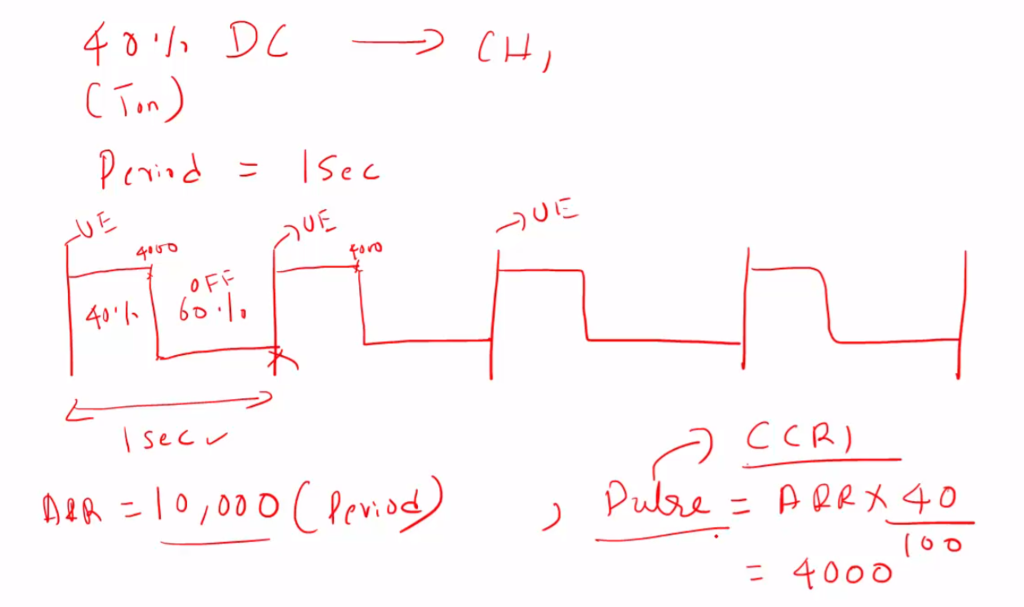 40% DC → CH1
(Ton)
Period = 1 Sec
UE UE UE
4000 4000
OFF
40% 60%
1 sec ✓
ARR = 10,000 (Period) , Pulse = ARR X 40/100
CCR1
= 4000